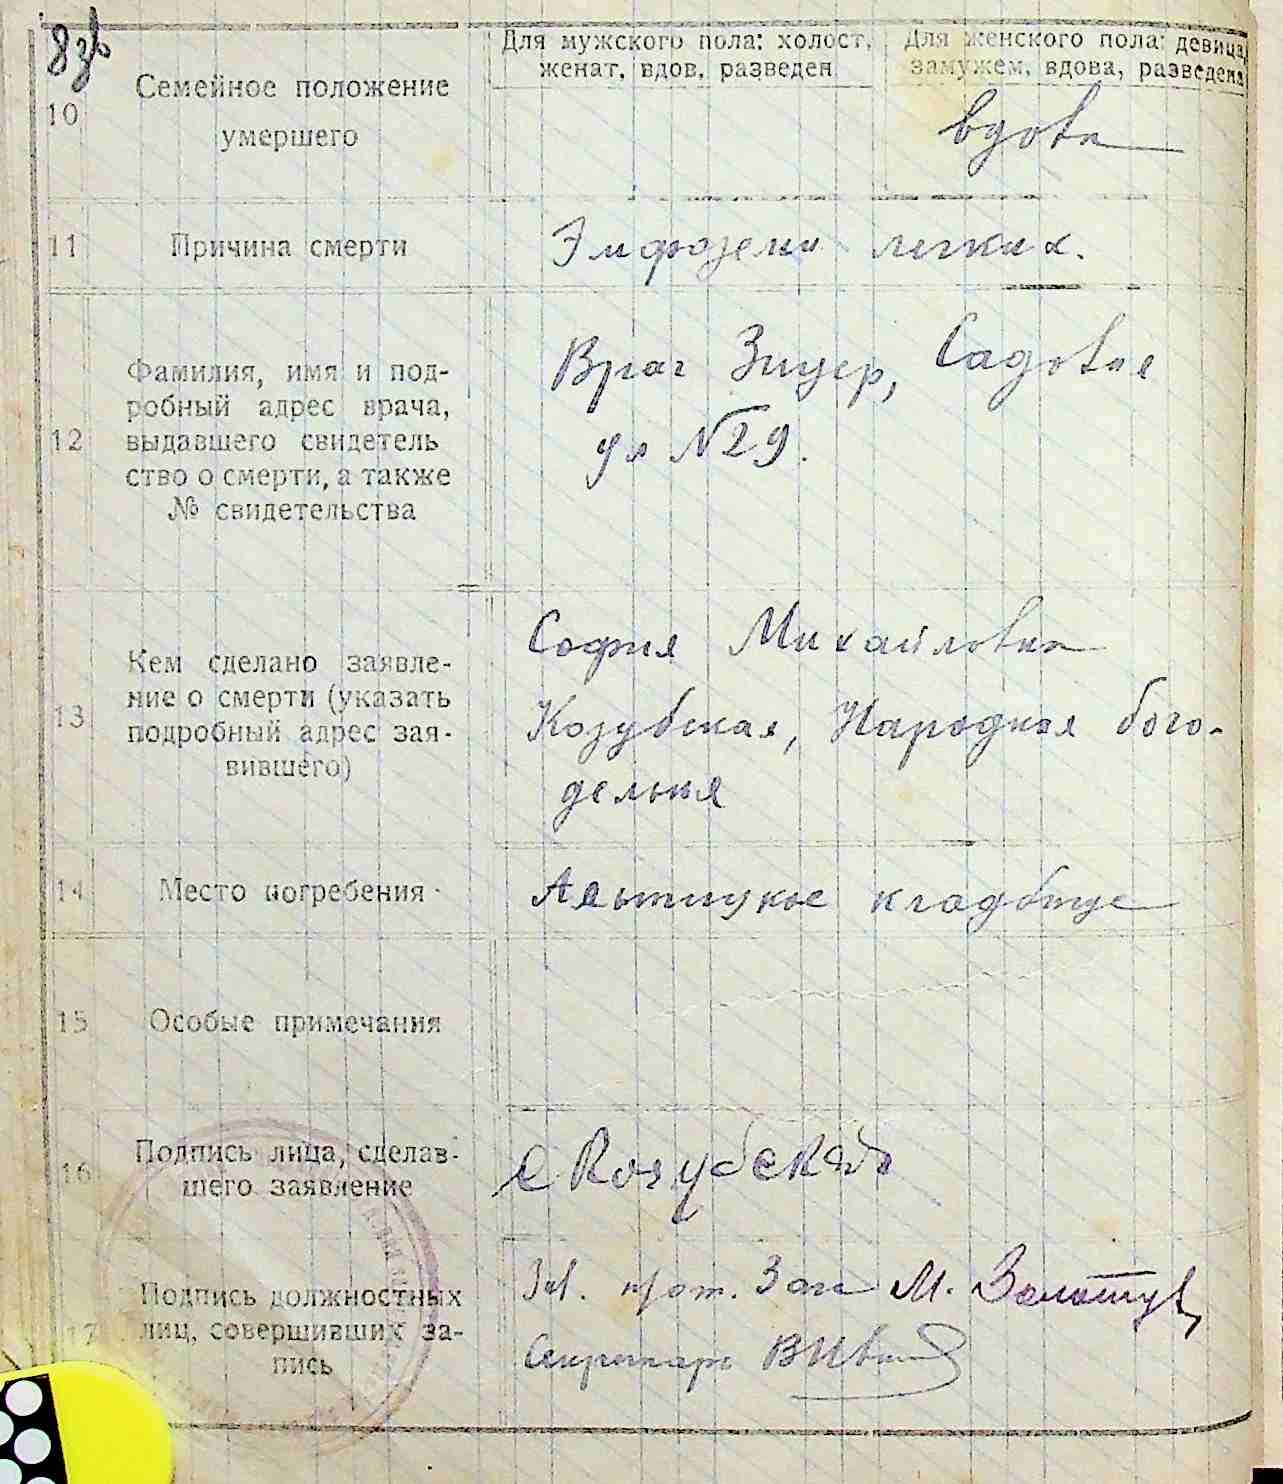 8зв
Для мужского пола: холост,
женат, вдов, разведен
Для женского пола: девица,
замужем, вдова, разведена
10
Семейное положение
умершего
вдова
11 Причина смерти
Эмфозема легких.
12
Фамилия, имя и под-
робный адрес врача,
выдавшего свидетель
ство о смерти, а также
№ свидетельства
Врач Зицер, Садовая
ул №29.
13
Кем сделано заявле-
ние о смерти (указать
подробный адрес зая-
вившего)
София Михайловна
Козубская, Народная бого-
дельня
14 Место погребения
кладбище
15 Особые примечания
16
Подпись лица, сделав-
шего заявление
17
Подпись должностных
лиц, совершивших за-
пись
Зав. М.
Секретарь